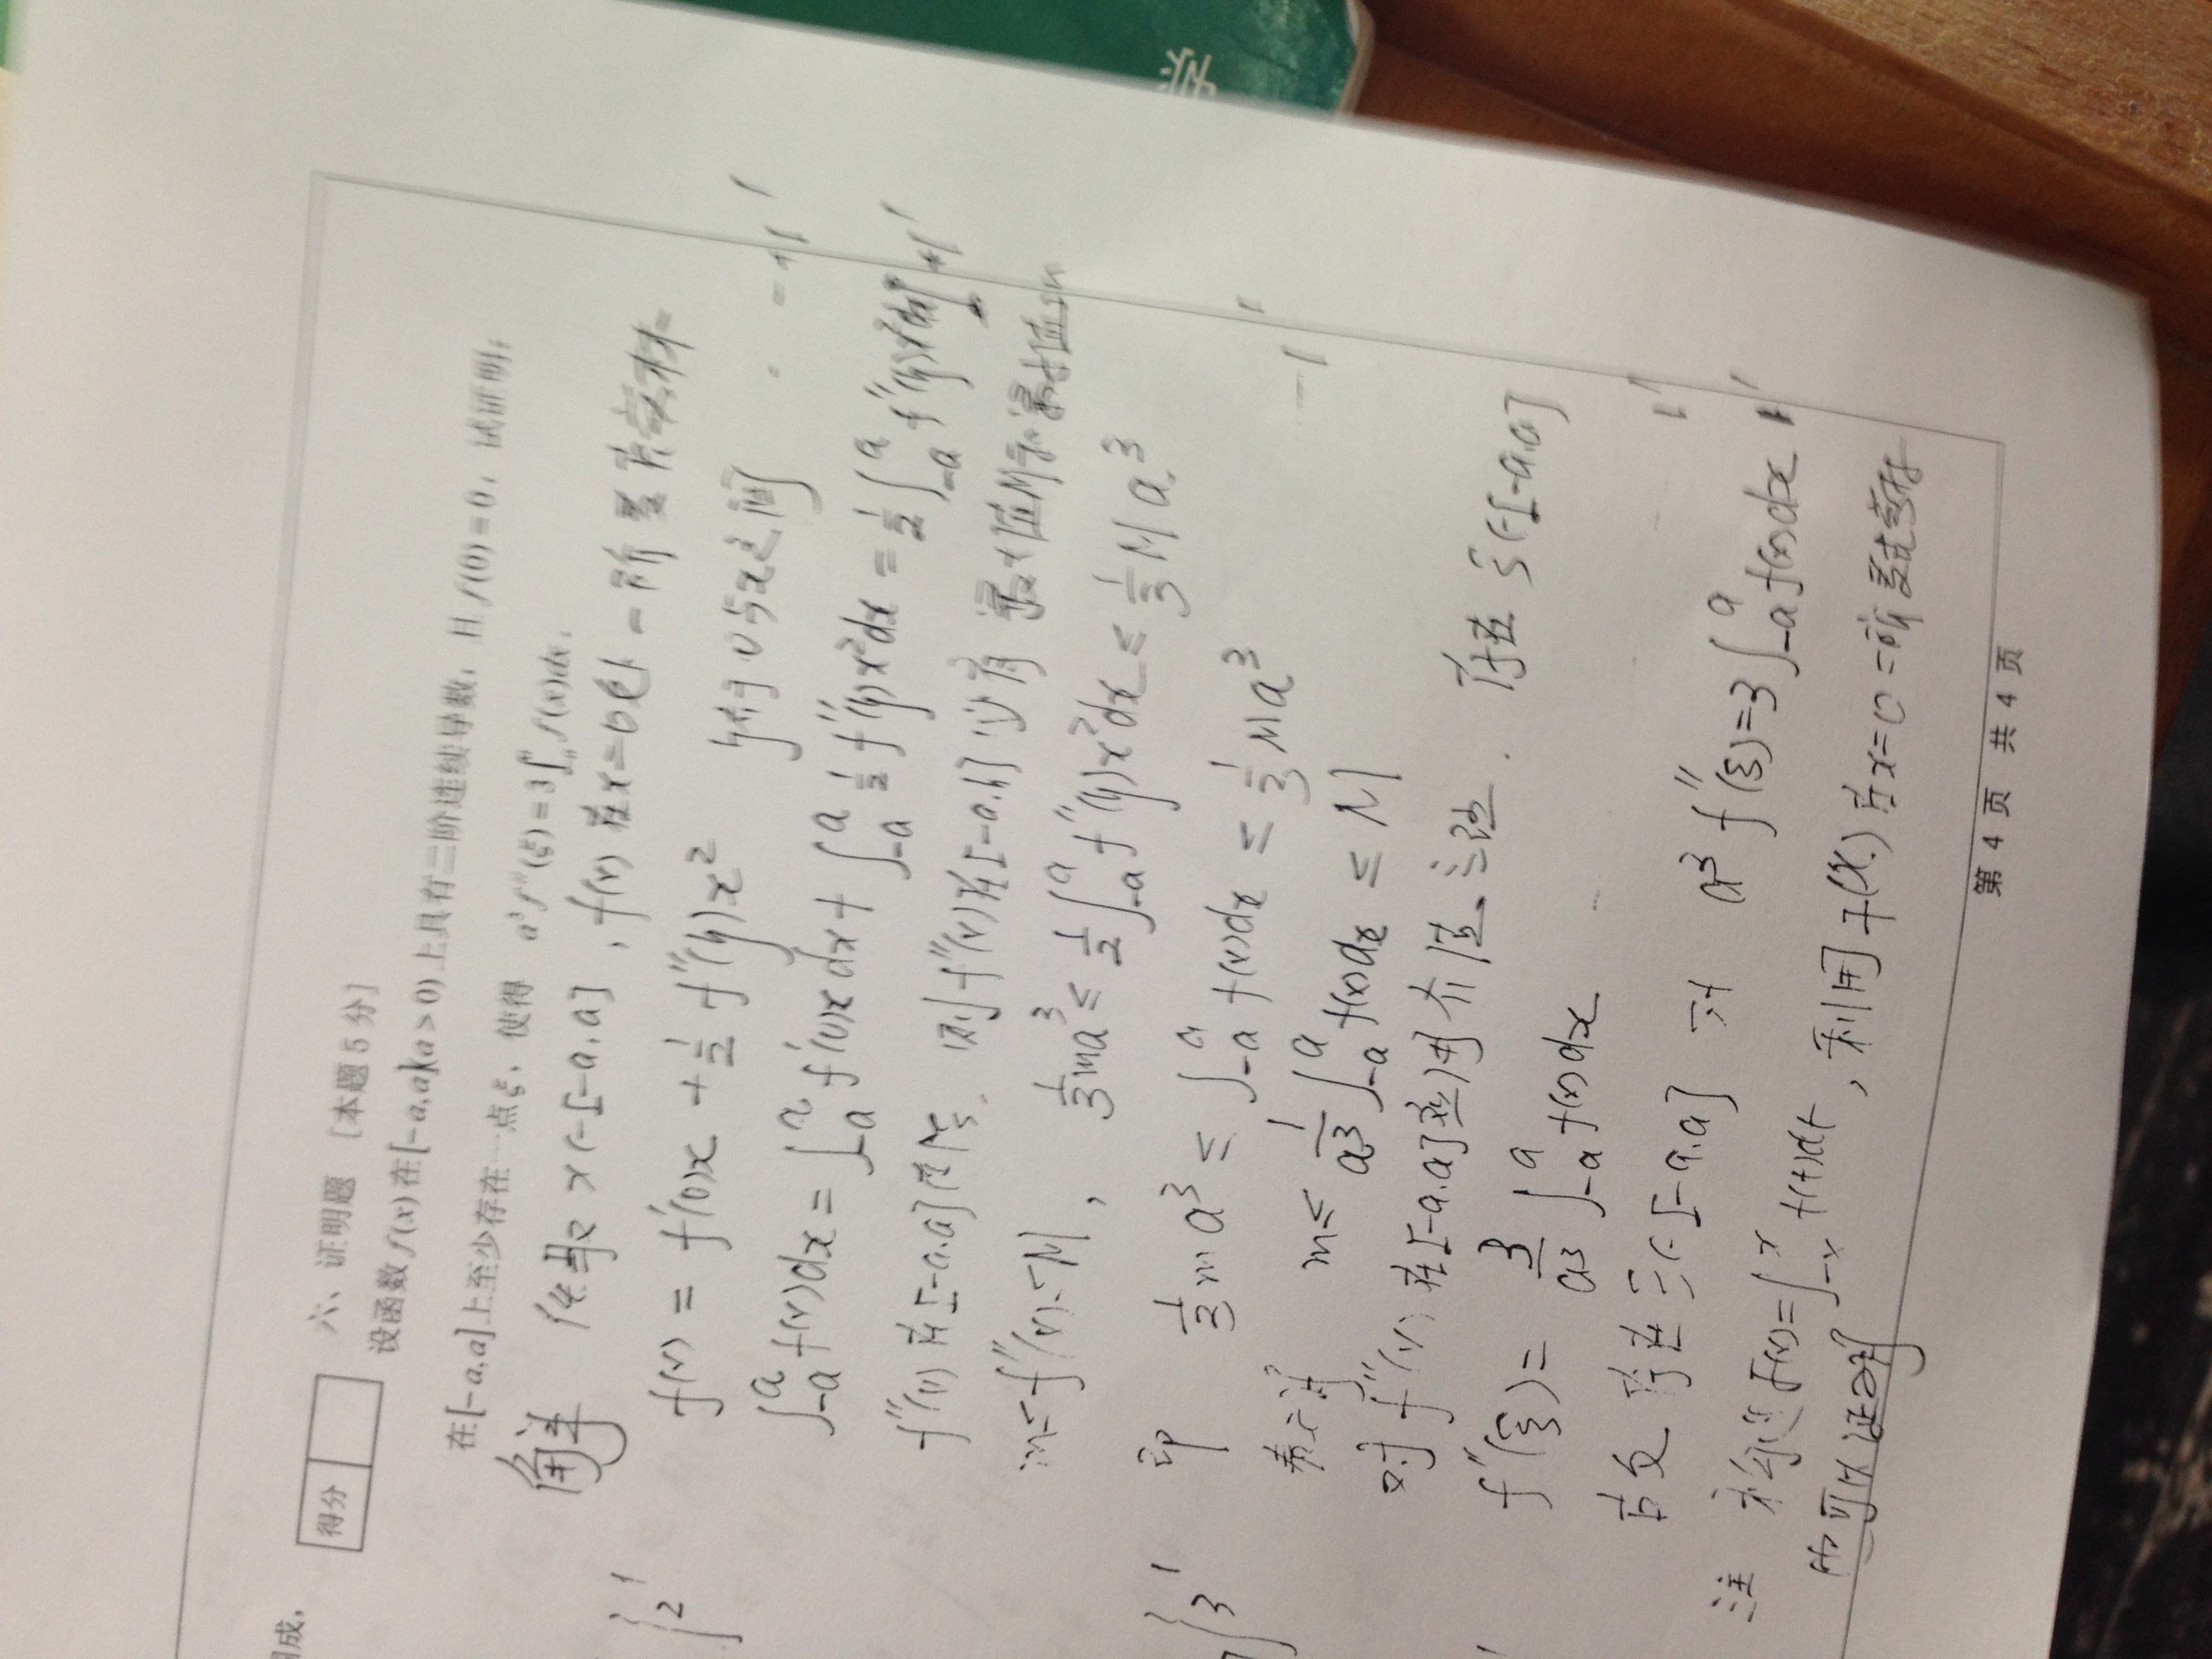 间成，
得分
六、证明题 [本题5分]
设函数 f(x) 在[-a,a](a>0)上具有二阶连续导数，且 f(0)=0，试证明：
在[-a,a]上至少存在一点ξ，使得 a³f''(ξ)=3∫₋ₐᵃ f(x)dx.
解 任取 x∈[-a,a]，f(x) 在x=0处一阶泰氏
f(x) = f'(0)x + 1/2 f''(η)x² η介于0与x之间 1'
∫₋ₐᵃ f(x)dx = ∫₋ₐᵃ f'(0)x dx + ∫₋ₐᵃ 1/2 f''(η)x²dx = 1/2 ∫₋ₐᵃ f''(η)x²dx 1'
f''(x) 在[-a,a]连续，则f''(x)在[-a,b]必有 最大值M和最小值m
m≤f''(x)≤M， 1/3 ma³ ≤ 1/2 ∫₋ₐᵃ f''(η)x²dx ≤ 1/3 Ma³
即 1/3 ma³ ≤ ∫₋ₐᵃ f(x)dx ≤ 1/3 Ma³
m≤ 1/a³ ∫₋ₐᵃ f(x)dx ≤ M 1'
对f''(x) 在[-a,a]应用介值定理，存在ξ∈[-a,a]
f''(ξ) = 3/a³ ∫₋ₐᵃ f(x)dx
故存在ξ∈[-a,a] 对 a³f''(ξ)=3∫₋ₐᵃ f(x)dx 1'
注 构造F(x)=∫₋ₓˣ f(t)dt，利用F(x)在x=0二阶泰式
也可以证明
第 4 页 共 4 页
}2'
}3'